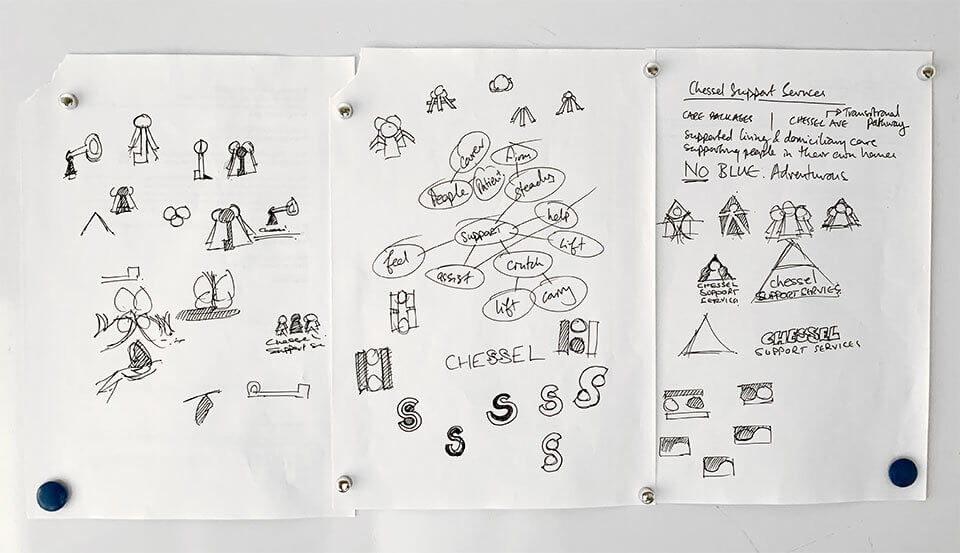 Chessel
Chessel
Support Se
Carer
Firm
People
Patient
steady
help
support
feel
lift
assist
crutch
lift
carry
CHESSEL
S
S
S
S
S
S
Chessel Support Services
CARE PACKAGES | CHESSEL AVE → Transitional
Pathway
Supported living & domiciliary care
supporting people in their own homes
NO BLUE. Adventurous
CHESSEL
SUPPORT
SERVICES
Chessel
SUPPORT SERVICES
CHESSEL
SUPPORT SERVICES